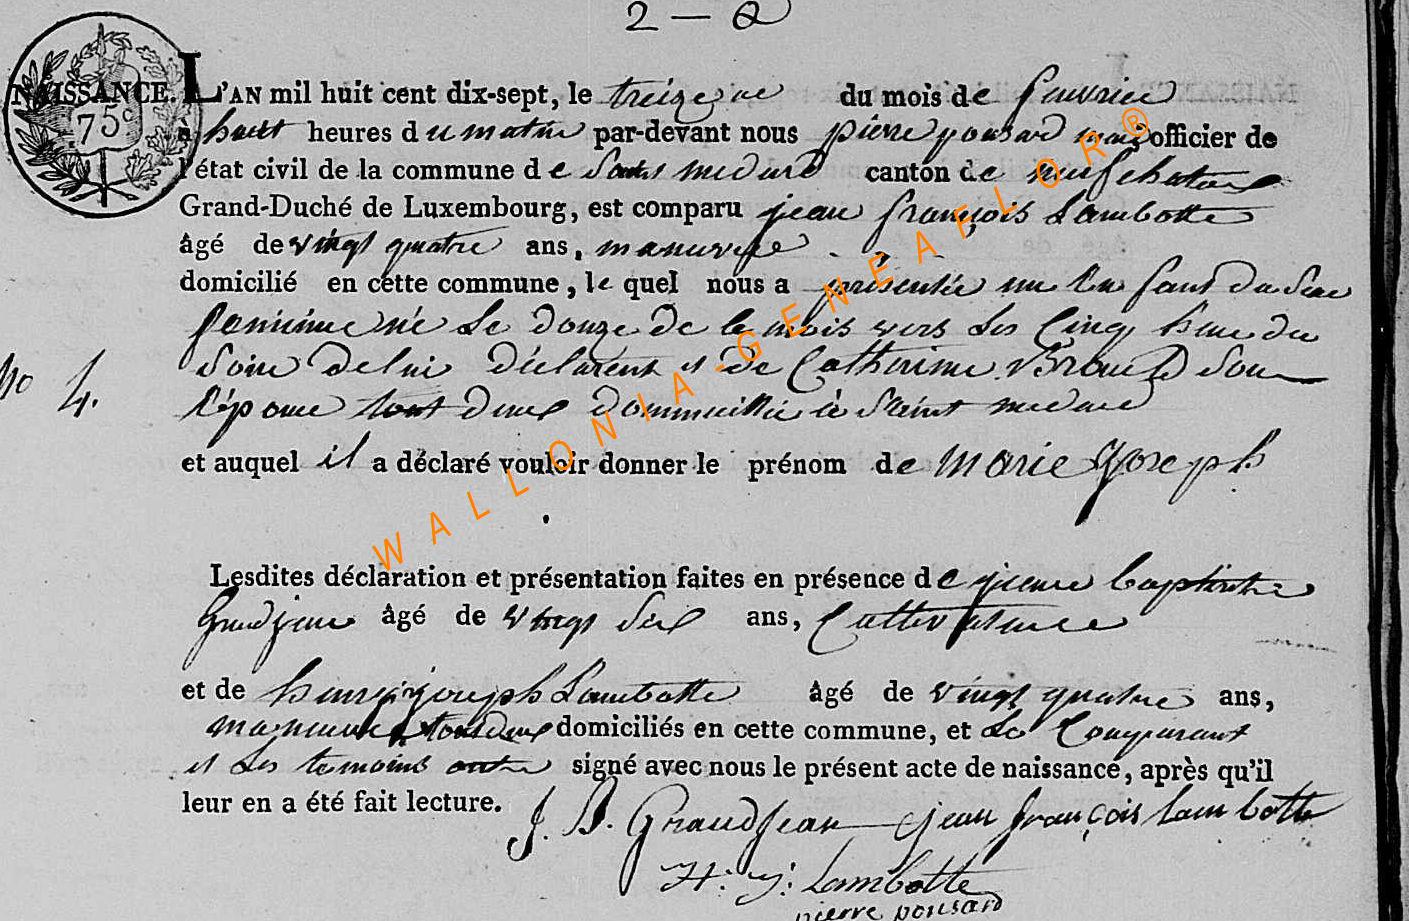 2 - Q
NAISSANCE. L'AN mil huit cent dix-sept, le treizeme du mois de fevrier
75c
à huit heures du matin par-devant nous pierre ponsard officier de
l'état civil de la commune de Saint medard canton de neufchateau
Grand-Duché de Luxembourg, est comparu jean françois Lambotte
âgé de vingt quatre ans, manuvre
domicilié en cette commune, le quel nous a présentée un En fant du Sexe
feminine né Le douze de ce mois vers Les Cinq heure du
Soire de lui déclarent et de Catherinne Son
l'épouse tout deux dommicillié à Saint medard
No 4.
et auquel il a déclaré vouloir donner le prénom de Marie Joseph
Lesdites déclaration et présentation faites en présence de jean baptiste
Grandjean âgé de vingt Six ans, Cultivateure
et de henry joseph Lambotte âgé de vingt quatre ans,
manuvre tout deux domiciliés en cette commune, et Le Comparant
et Les temoins ont signé avec nous le présent acte de naissance, après qu'il
leur en a été fait lecture.
J. B. Grandjean jean françois lambotte
H: J: Lambotte
pierre ponsard
WALLONIA-GENEAFLOR®